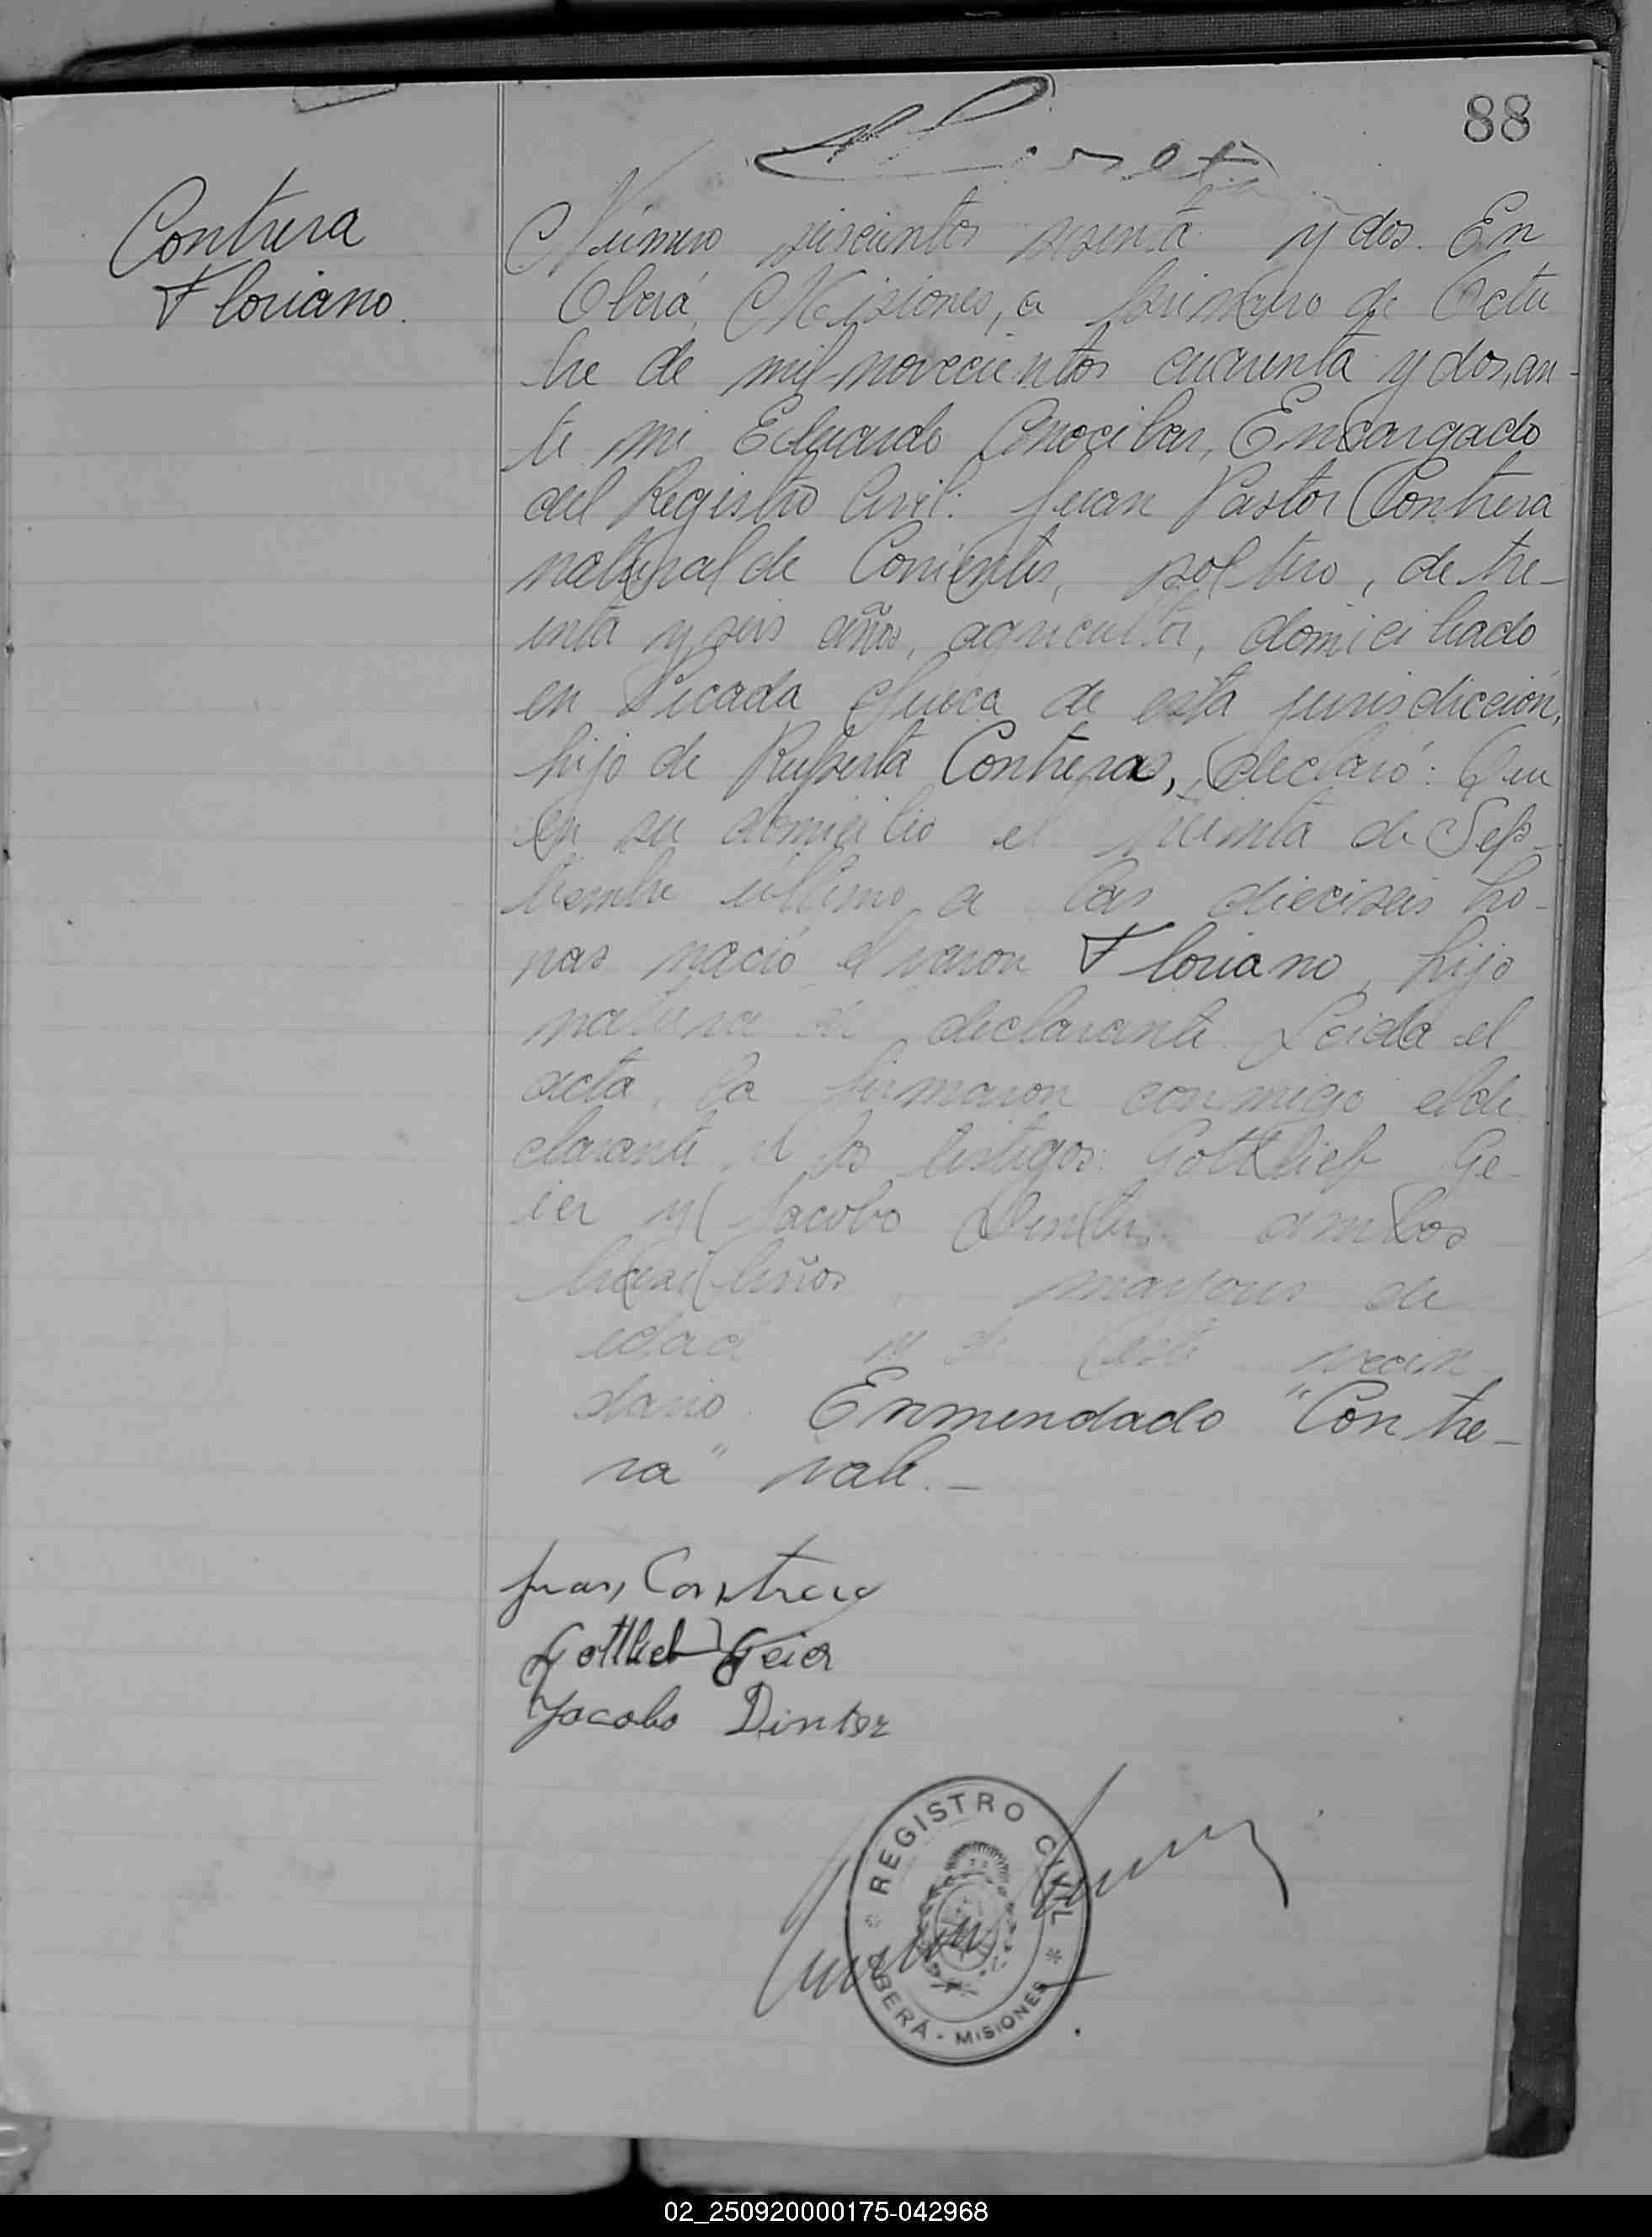 88
Contrera
Floriano.
Número seiscientos sesenta y dos. En
Oberá, Misiones, a primero de Octu
bre de mil novecientos cuarenta y dos, an-
te mi Eduardo Encargado
del Registro Civil: Juan Pastor Contrera
natural de Corrientes, soltero, de tre-
inta y seis años, agricultor, domiciliado
en Picada Sueca de esta jurisdicción,
hijo de Ruperta Contreras, declaró: Que
en su domicilio el treinta de Sep-
tiembre último a las dieciseis ho-
ras nació el varon Floriano, hijo
natural declarante. Leida el
acta, la firmaron conmigo el de
clarante y los testigos: Gottlieb Ge-
ier y Jacobo Dinter ambos
brasileños, mayores de
edad y de este vecin
dario. Enmendado "Contre-
ra" vale.-
Juan Contrera
Gottlieb Geier
Jacobo Dinter
REGISTRO CIVIL
OBERÁ - MISIONES
02_250920000175-042968